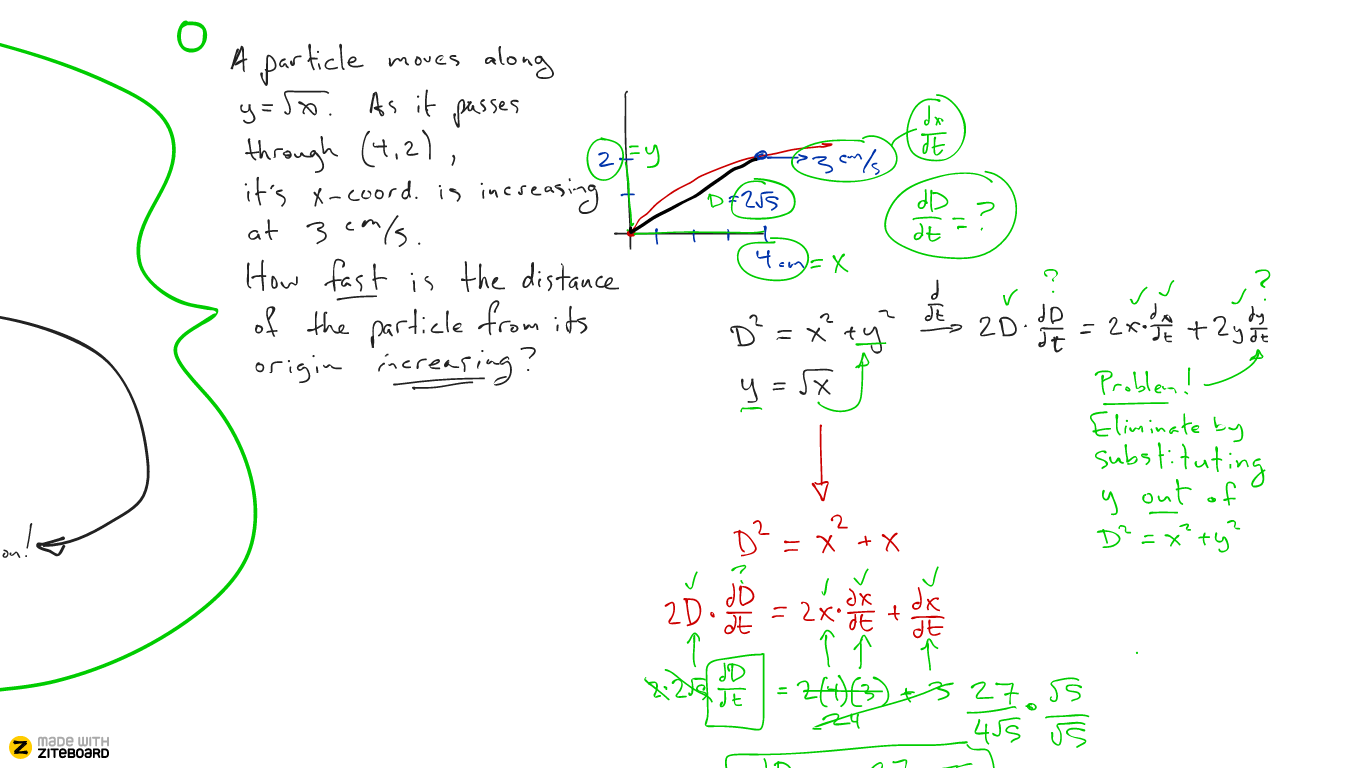 A particle moves along
y = √x. As it passes
through (4,2),
it's x-coord. is increasing
at 3 cm/s.
How fast is the distance
of the particle from its
origin increasing?
2 = y
3 cm/s
dx/dt
D = 2√5
dD/dt = ?
4 cm = x
D² = x² + y²
d/dt
2D · dD/dt = 2x · dx/dt + 2y dy/dt
✓ ? ✓ ✓ ✓ ?
y = √x
Problem!
Eliminate by
substituting
y out of
D² = x² + y²
D² = x² + x
✓ ? ✓ ✓ ✓
2D · dD/dt = 2x · dx/dt + dx/dt
2·2√5 dD/dt = 2(4)(3) + 3
24
27/4√5 · √5/√5
on!
MADE WITH
ZITEBOARD